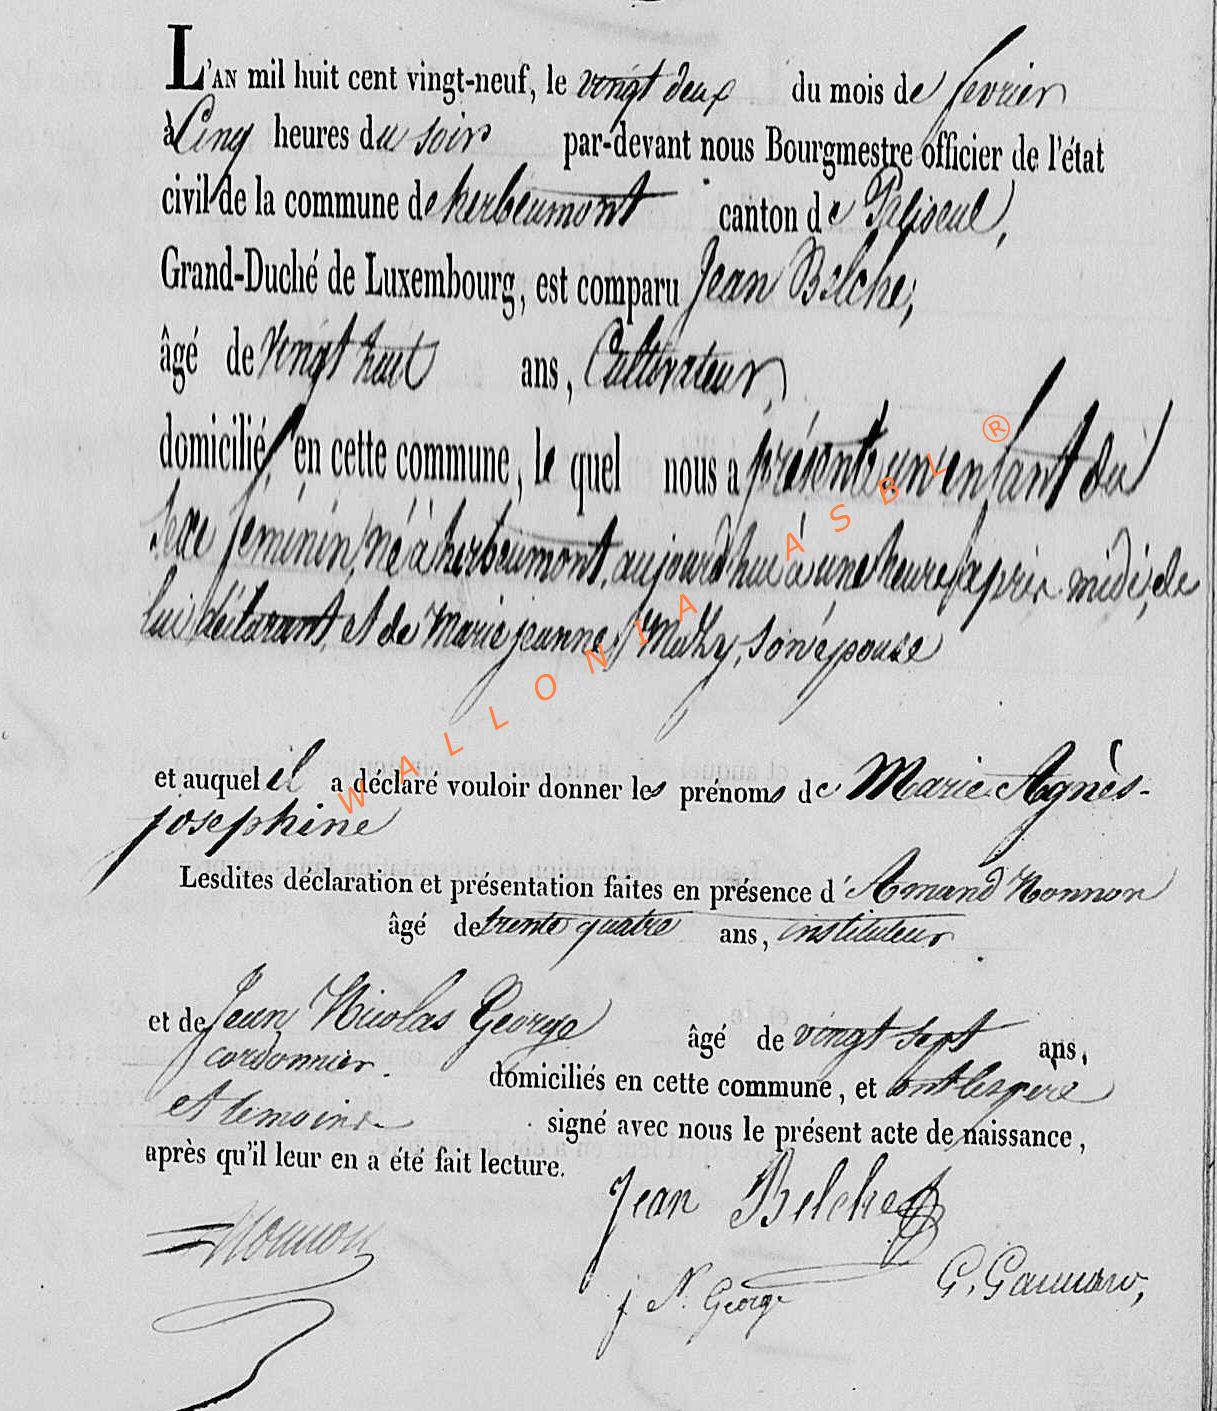 L'AN mil huit cent vingt-neuf, le vingt deux du mois de fevrier
à Cinq heures du soir par-devant nous Bourgmestre officier de l'état
civil de la commune de herbeumont canton de Paliseul,
Grand-Duché de Luxembourg, est comparu Jean Belche,
âgé de vingt huit ans, Cultivateur,
domicilié en cette commune, le quel nous a présenté un enfant du
sexe feminin, né à herbeumont, aujourd'hui à une heure après midi, de
lui déclarant, et de Marie jeanne Mathy, son épouse
et auquel il a déclaré vouloir donner les prénoms de Marie Agnès-
josephine
Lesdites déclaration et présentation faites en présence d'Amand Nonnon
âgé de trente quatre ans, instituteur
et de Jean Nicolas George âgé de vingt sept ans,
cordonnier.
domiciliés en cette commune, et ont les père
et temoins signé avec nous le présent acte de naissance,
après qu'il leur en a été fait lecture.
Jean Belche
Nonnon
j N. George
G.
WALLONIA ASBL ®